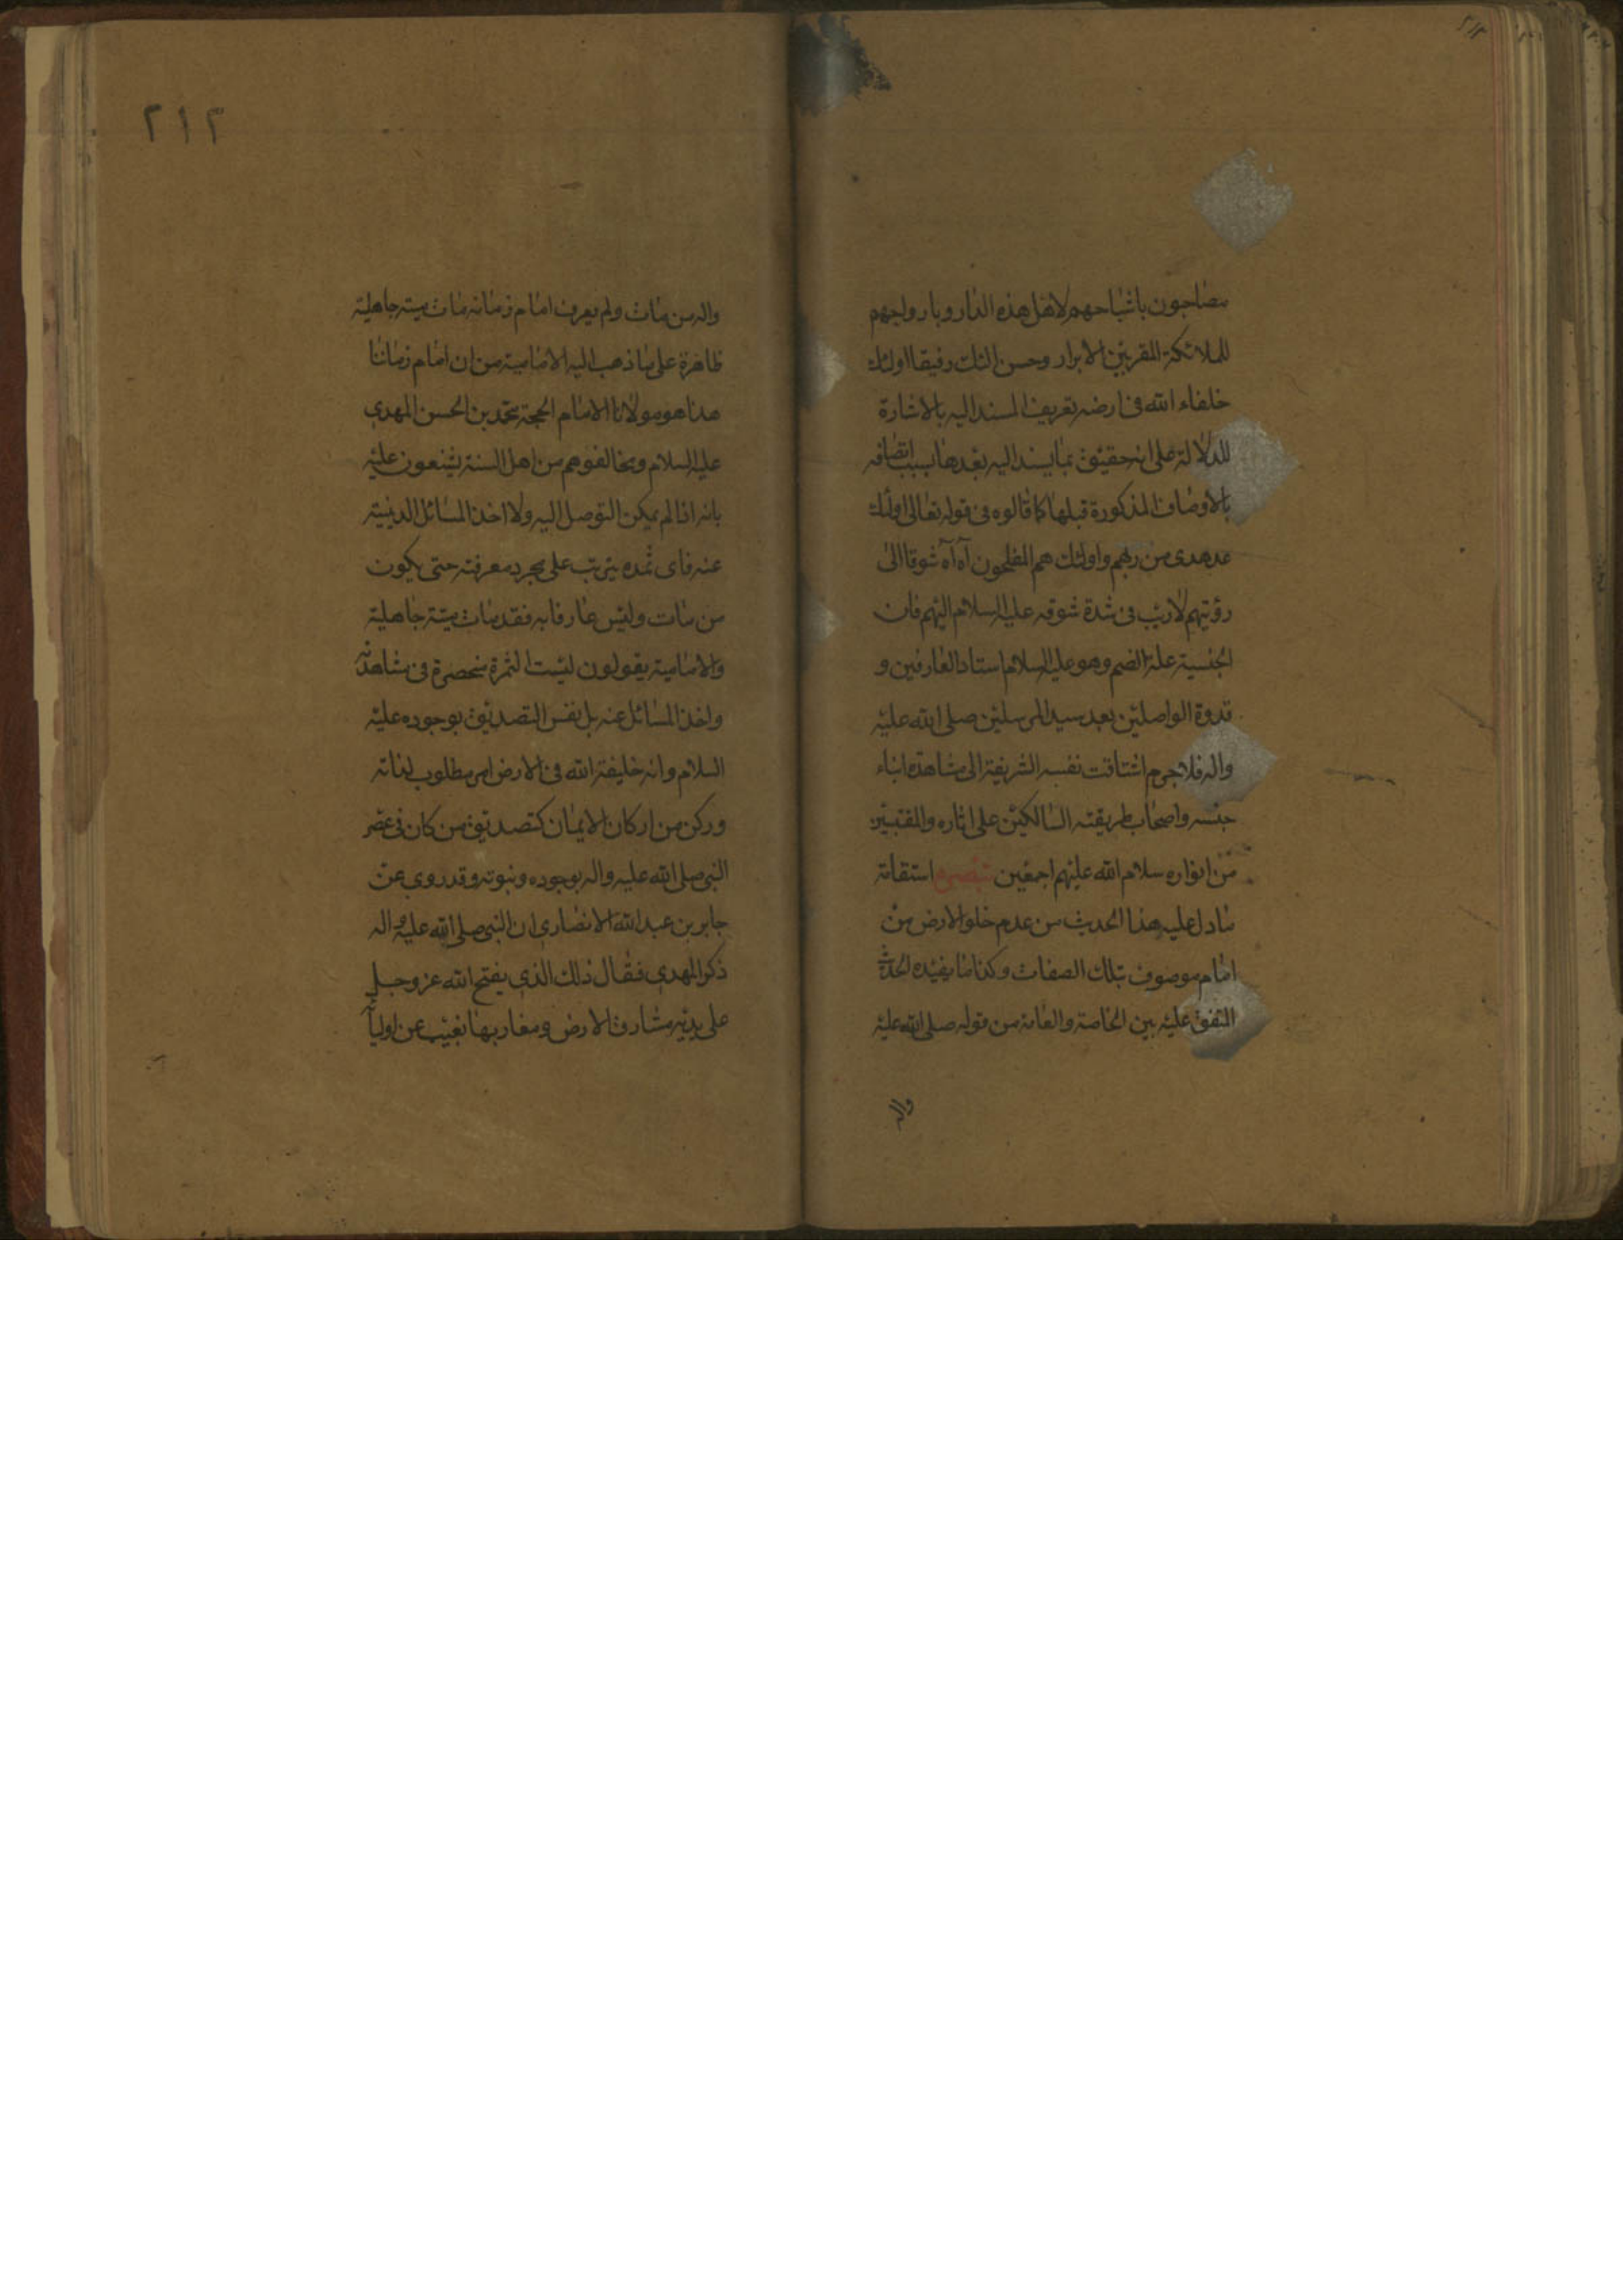 مصاحبون باشباحهم لاهل هذه الدار وبارواحهم
للملائكة المقربين الابرار وحسن اولئك رفيقا اولئك
خلفاء الله فى ارضه تعريف المسند اليه بالاشارة
للدلالة على انه حقيق بما يسند اليه بعدها بسبب اتصافه
بالاوصاف المذكورة قبلها كما قالوه فى قوله تعالى اولئك
هدى من ربهم واولئك هم المفلحون آه آه شوقا الى
رؤيتهم لاريب فى شدة شوقه عليه السلام اليهم فان
الجنسية علة الضم وهو عليه السلام استاد العارفين و
قدوة الواصلين بعد سيد المرسلين صلى الله عليه
واله فلاجرم اشتاقت نفسه الشريفة الى مشاهدة ابناء
جنسه واصحاب طريقته السالكين على اثاره والمقتبسين
من انواره سلام الله عليهم اجمعين تبصرة استقامة
مادل عليه هذا الحديث من عدم خلو الارض من
امام موصوف بتلك الصفات وكذا ما يفيده الحديث
المتفق عليه بين الخاصة والعامة من قوله صلى الله عليه
واله
٢١٢
واله من مات ولم يعرف امام زمانه مات ميتة جاهلية
ظاهرة على ما ذهب اليه الامامية من ان امام زماننا
هذا هو مولانا الامام الحجة محمد بن الحسن المهدي
عليه السلام ومخالفوهم من اهل السنة يشنعون عليه
بانه اذا لم يمكن التوصل اليه ولا اخذ المسائل الدينية
عنه فاى ثمره يترتب على مجرد معرفته حتى يكون
من مات وليس عارفا به فقد مات ميتة جاهلية
والامامية يقولون ليست الثمرة منحصرة فى مشاهدته
واخذ المسائل عنه بل نفس التصديق بوجوده عليه
السلام وانه خليفة الله فى الارض امر مطلوب لذاته
وركن من اركان الايمان كتصديق من كان فى عصر
النبى صلى الله عليه واله بوجوده ونبوته وقد روى عن
جابر بن عبد الله الانصاري ان النبى صلى الله عليه واله
ذكر المهدي فقال ذلك الذي يفتح الله عز وجل
على يديه مشارق الارض ومغاربها يغيب عن اوليآ